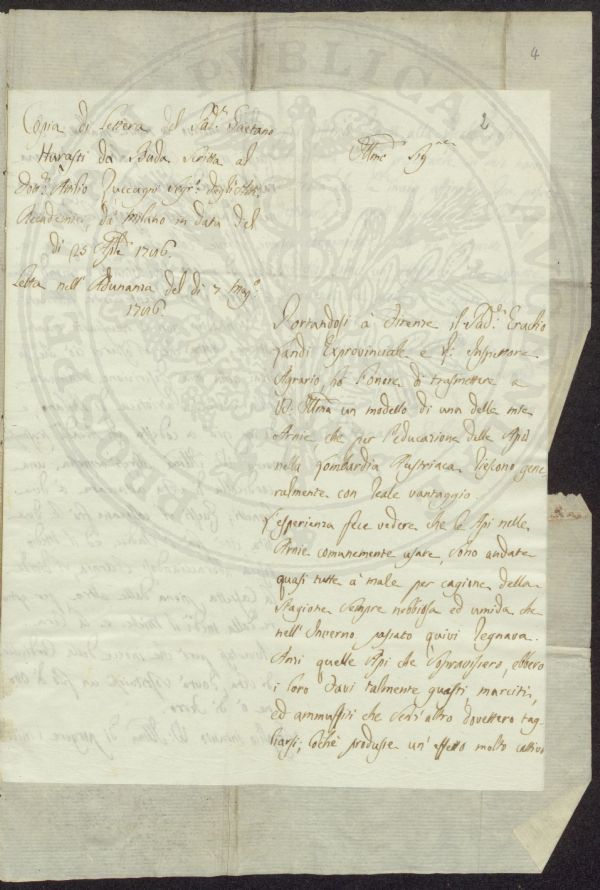 4
2
Copia di Lettera del Pad.re Gaetano
Harasti da Buda scritta al
Dott.r Attilio Zuccagni Segr.o degli Atti
Accademici, da Milano in data del
di 25 Aprile 1786.
Letta nell'Adunanza del di 7 Mag.o
1786.
Illmo Sig.re
Portandosi à Firenze il Pad.re Eraclio
Landi Exprovinciale e R. Inspettore
Agrario, hò l'onore di trasmettere a
V.S. Illma un modello di una delle mie
Arnie che per l'educazione delle Api
nella Lombardia Austriaca riescono gene
ralmente con reale vantaggio.
L'esperienza fece vedere che le Api nelle
Arnie comunemente usate, sono andate
quasi tutte à male per cagione della
Stagione sempre nebbiosa ed umida che
nell'Inverno passato quivi regnava.
Anzi quelle Api che sopravissero, ebbero
i loro Favi talmente guasti, marciti,
ed ammuffiti che senz'altro dovettero tag
liarsi; locchè produsse un'effetto molto cattivo